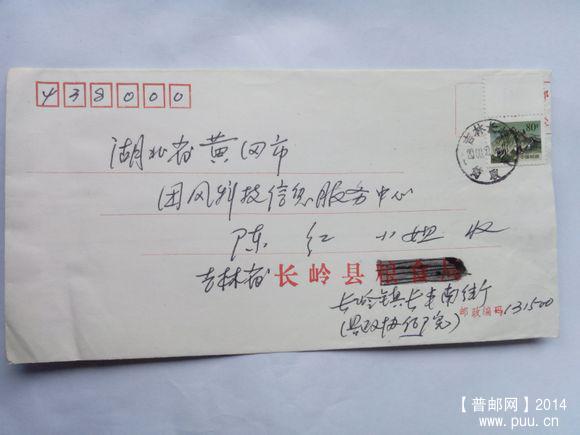 438000
80分
中国邮政
吉林
湖北省黄冈市
团风科技信息服务中心
陈红小姐收
吉林省长岭县
长岭镇长 南街
邮政编码131500
(县政协 院)
【普邮网】2014
www.puu.cn